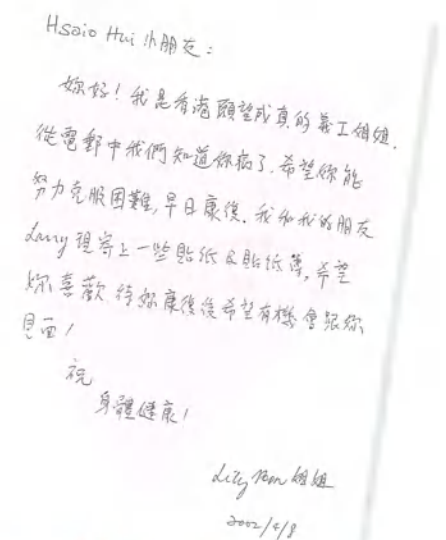 Hsaio Hui 小朋友：
妳好！我是香港願望成真的義工姐姐.
從電郵中我們知道你病了.希望妳能
努力克服困難,早日康復.我和我的朋友
Larry 現寄上一些貼紙及貼紙簿,希望
妳喜歡.待妳康復後希望有機會跟妳
見面！
祝
身體健康！
Lily 姐姐
2002/4/8